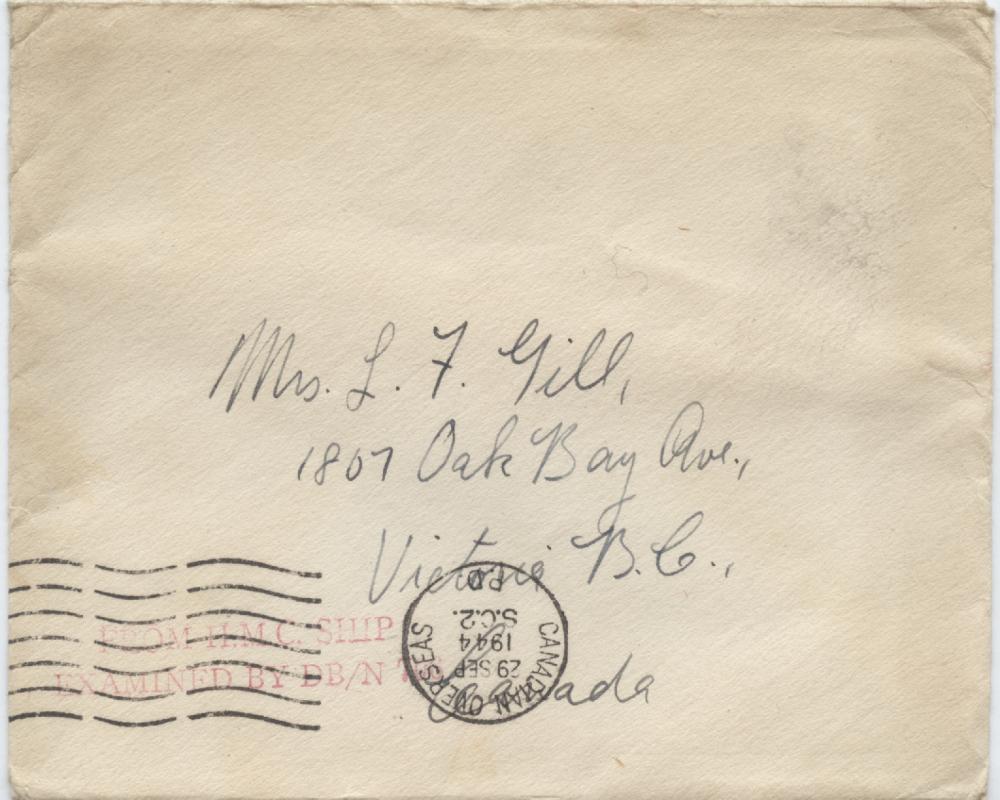 Mrs. L. F. Gill,
1807 Oak Bay Ave.,
Victoria B.C.,
Canada
FROM H.M.C. SHIP
EXAMINED BY DB/N
CANADIAN OVERSEAS
29 SEP
1944
S.C.2.
P.D.